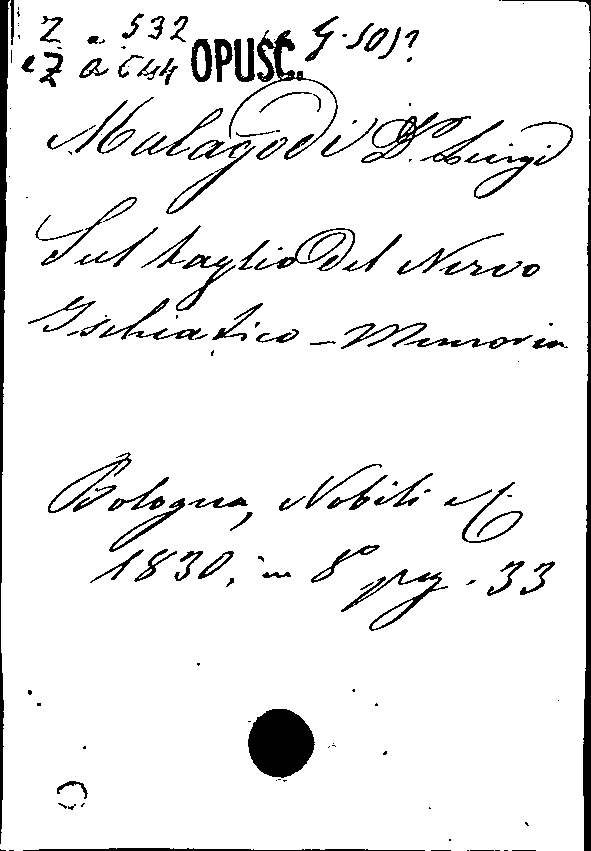 Z a 532
e Z a 644 OPUSC.
Malagodi Dr. Luigi
Sul taglio del Nervo
Ischiatico - Memoria
Bologna, Nobili e C.
1830, in 8° pag. 33